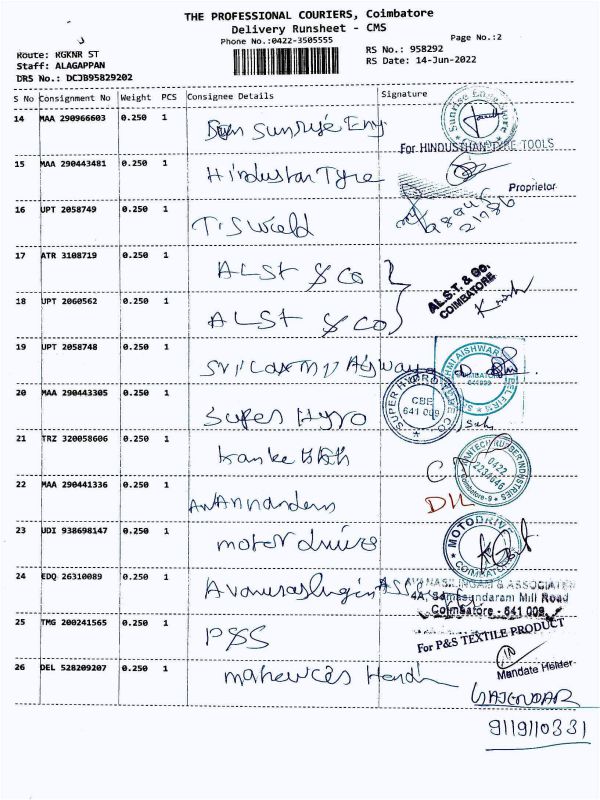 THE PROFESSIONAL COURIERS, Coimbatore
Delivery Runsheet - CMS
Phone No.:0422-3505555
Page No.:2
Route: KGKNR ST
Staff: ALAGAPPAN
DRS No.: DCJB95829202
RS No.: 958292
RS Date: 14-Jun-2022
S No Consignment No Weight PCS Consignee Details Signature
14 MAA 290966603 0.250 1 Sunrise Eng
For HINDUSTHAN TYRE TOOLS
15 MAA 290443481 0.250 1 Hindustan Tyre
Proprietor
16 UPT 2058749 0.250 1 T.S Wield
17 ATR 3108719 0.250 1 ALSt & Co
AL.S.T. & Co.
COIMBATORE
18 UPT 2060562 0.250 1 ALSt & Co
19 UPT 2058748 0.250 1
20 MAA 290443305 0.250 1 Super Hyro
SUPER HYDRO
CBE
641 009
21 TRZ 320058606 0.250 1
RUBBER INDUSTRIES
0422
2234646
Coimbatore-9
22 MAA 290441336 0.250 1
23 UDI 938698147 0.250 1 motor drives
MOTODRIVE
COIMBATORE
24 EDQ 26310089 0.250 1
AVANASILINGAM & ASSOCIATES
4A, Somasundaram Mill Road
Coimbatore - 641 009
25 TMG 200241565 0.250 1 P&S
For P&S TEXTILE PRODUCT
Mandate Holder
26 DEL 528209207 0.250 1
GAJENDAR
9119110331